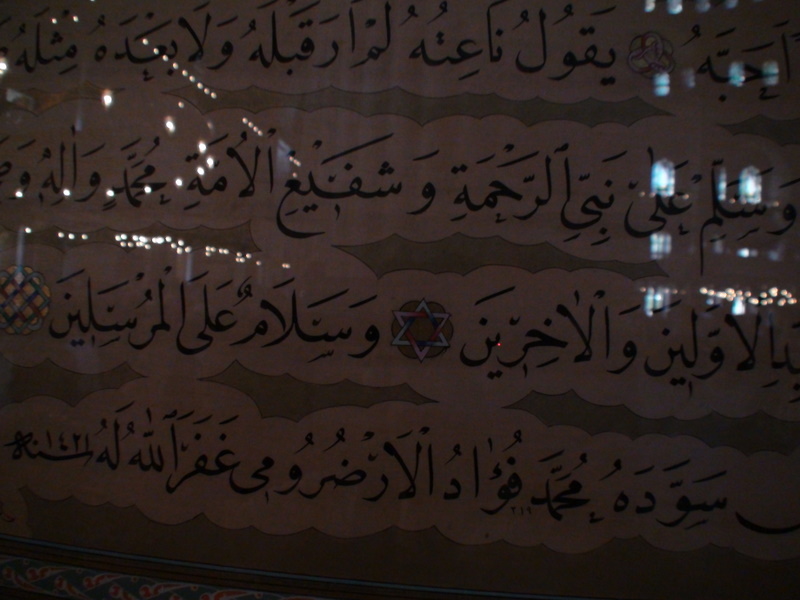 أَحَبَّهُ يَقُولُ نَاعِتُهُ لَمْ أَرَ قَبْلَهُ وَلَا بَعْدَهُ مِثْلَهُ
وَسَلِّمْ عَلَى نَبِيِّ الرَّحْمَةِ وَ شَفِيْعِ الْأُمَّةِ مُحَمَّدٍ وَاٰلِهِ
الْأَوَّلِينَ وَالْاٰخِرِينَ وَسَلَامٌ عَلَى الْمُرْسَلِينَ
سَوَّدَهُ مُحَمَّد فُؤَادُ الْأَرْضُرُومِى غَفَرَ اللّٰهُ لَهُ سنة ١٤٢١